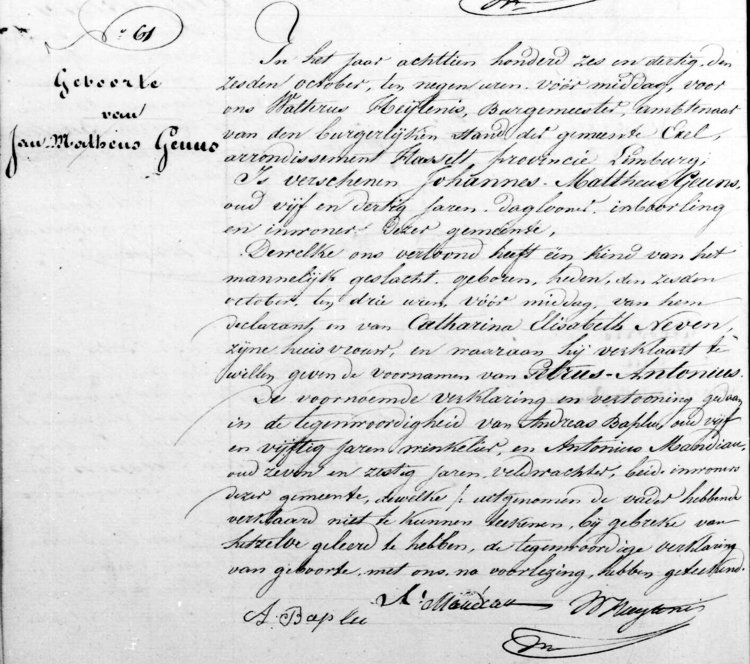 N° 61
Geboorte
van
Jan-Matheus Geuns
In het jaar achttien honderd zes en dertig, den
zesden october, ten negen uren vóór middag, voor
ons Matheus Heijlenis, Burgemeester, ambtenaar
van den burgerlijken stand der gemeente Exel,
arrondissement Hasselt, provincie Limburg;
Is verschenen Johannes-Mattheus Geuns,
oud vijf en dertig jaren, daglooner, inboorling
en inwoner dezer gemeente,
Dewelke ons vertoond heeft één kind van het
mannelijk geslacht, geboren, heden, den zesden
october, ten drie uren, vóór middag, van hem
declarant, en van Catharina Elisabeth Neven,
zijne huisvrouw, en waaraan hij verklaart te
willen geven de voornamen van Petrus-Antonius.
De voornoemde verklaring en vertooning gedaan
in de tegenwoordigheid van Andreas Baplue, oud vijf
en vijftig jaren, winkelier, en Antonius Mandiau,
oud zeven en zestig jaren, veldwachter, beide inwoners
dezer gemeente, dewelke /: uitgenomen de vader hebbende
verklaard niet te kunnen teekenen, bij gebreke van
hetzelve geleerd te hebben, de tegenwoordige verklaring
van geboorte, met ons, na voorlezing, hebben geteekend.
A. Baplu